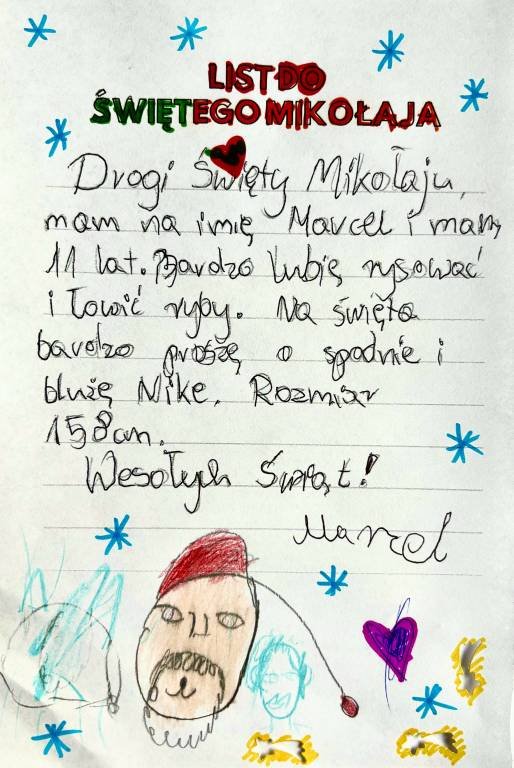 LIST DO
ŚWIĘTEGO MIKOŁAJA
Drogi Święty Mikołaju,
mam na imię Marcel i mam
11 lat. Bardzo lubię rysować
i łowić ryby. Na święta
bardzo proszę o spodnie i
bluzę Nike. Rozmiar
158cm.
Wesołych Świąt!
Marcel